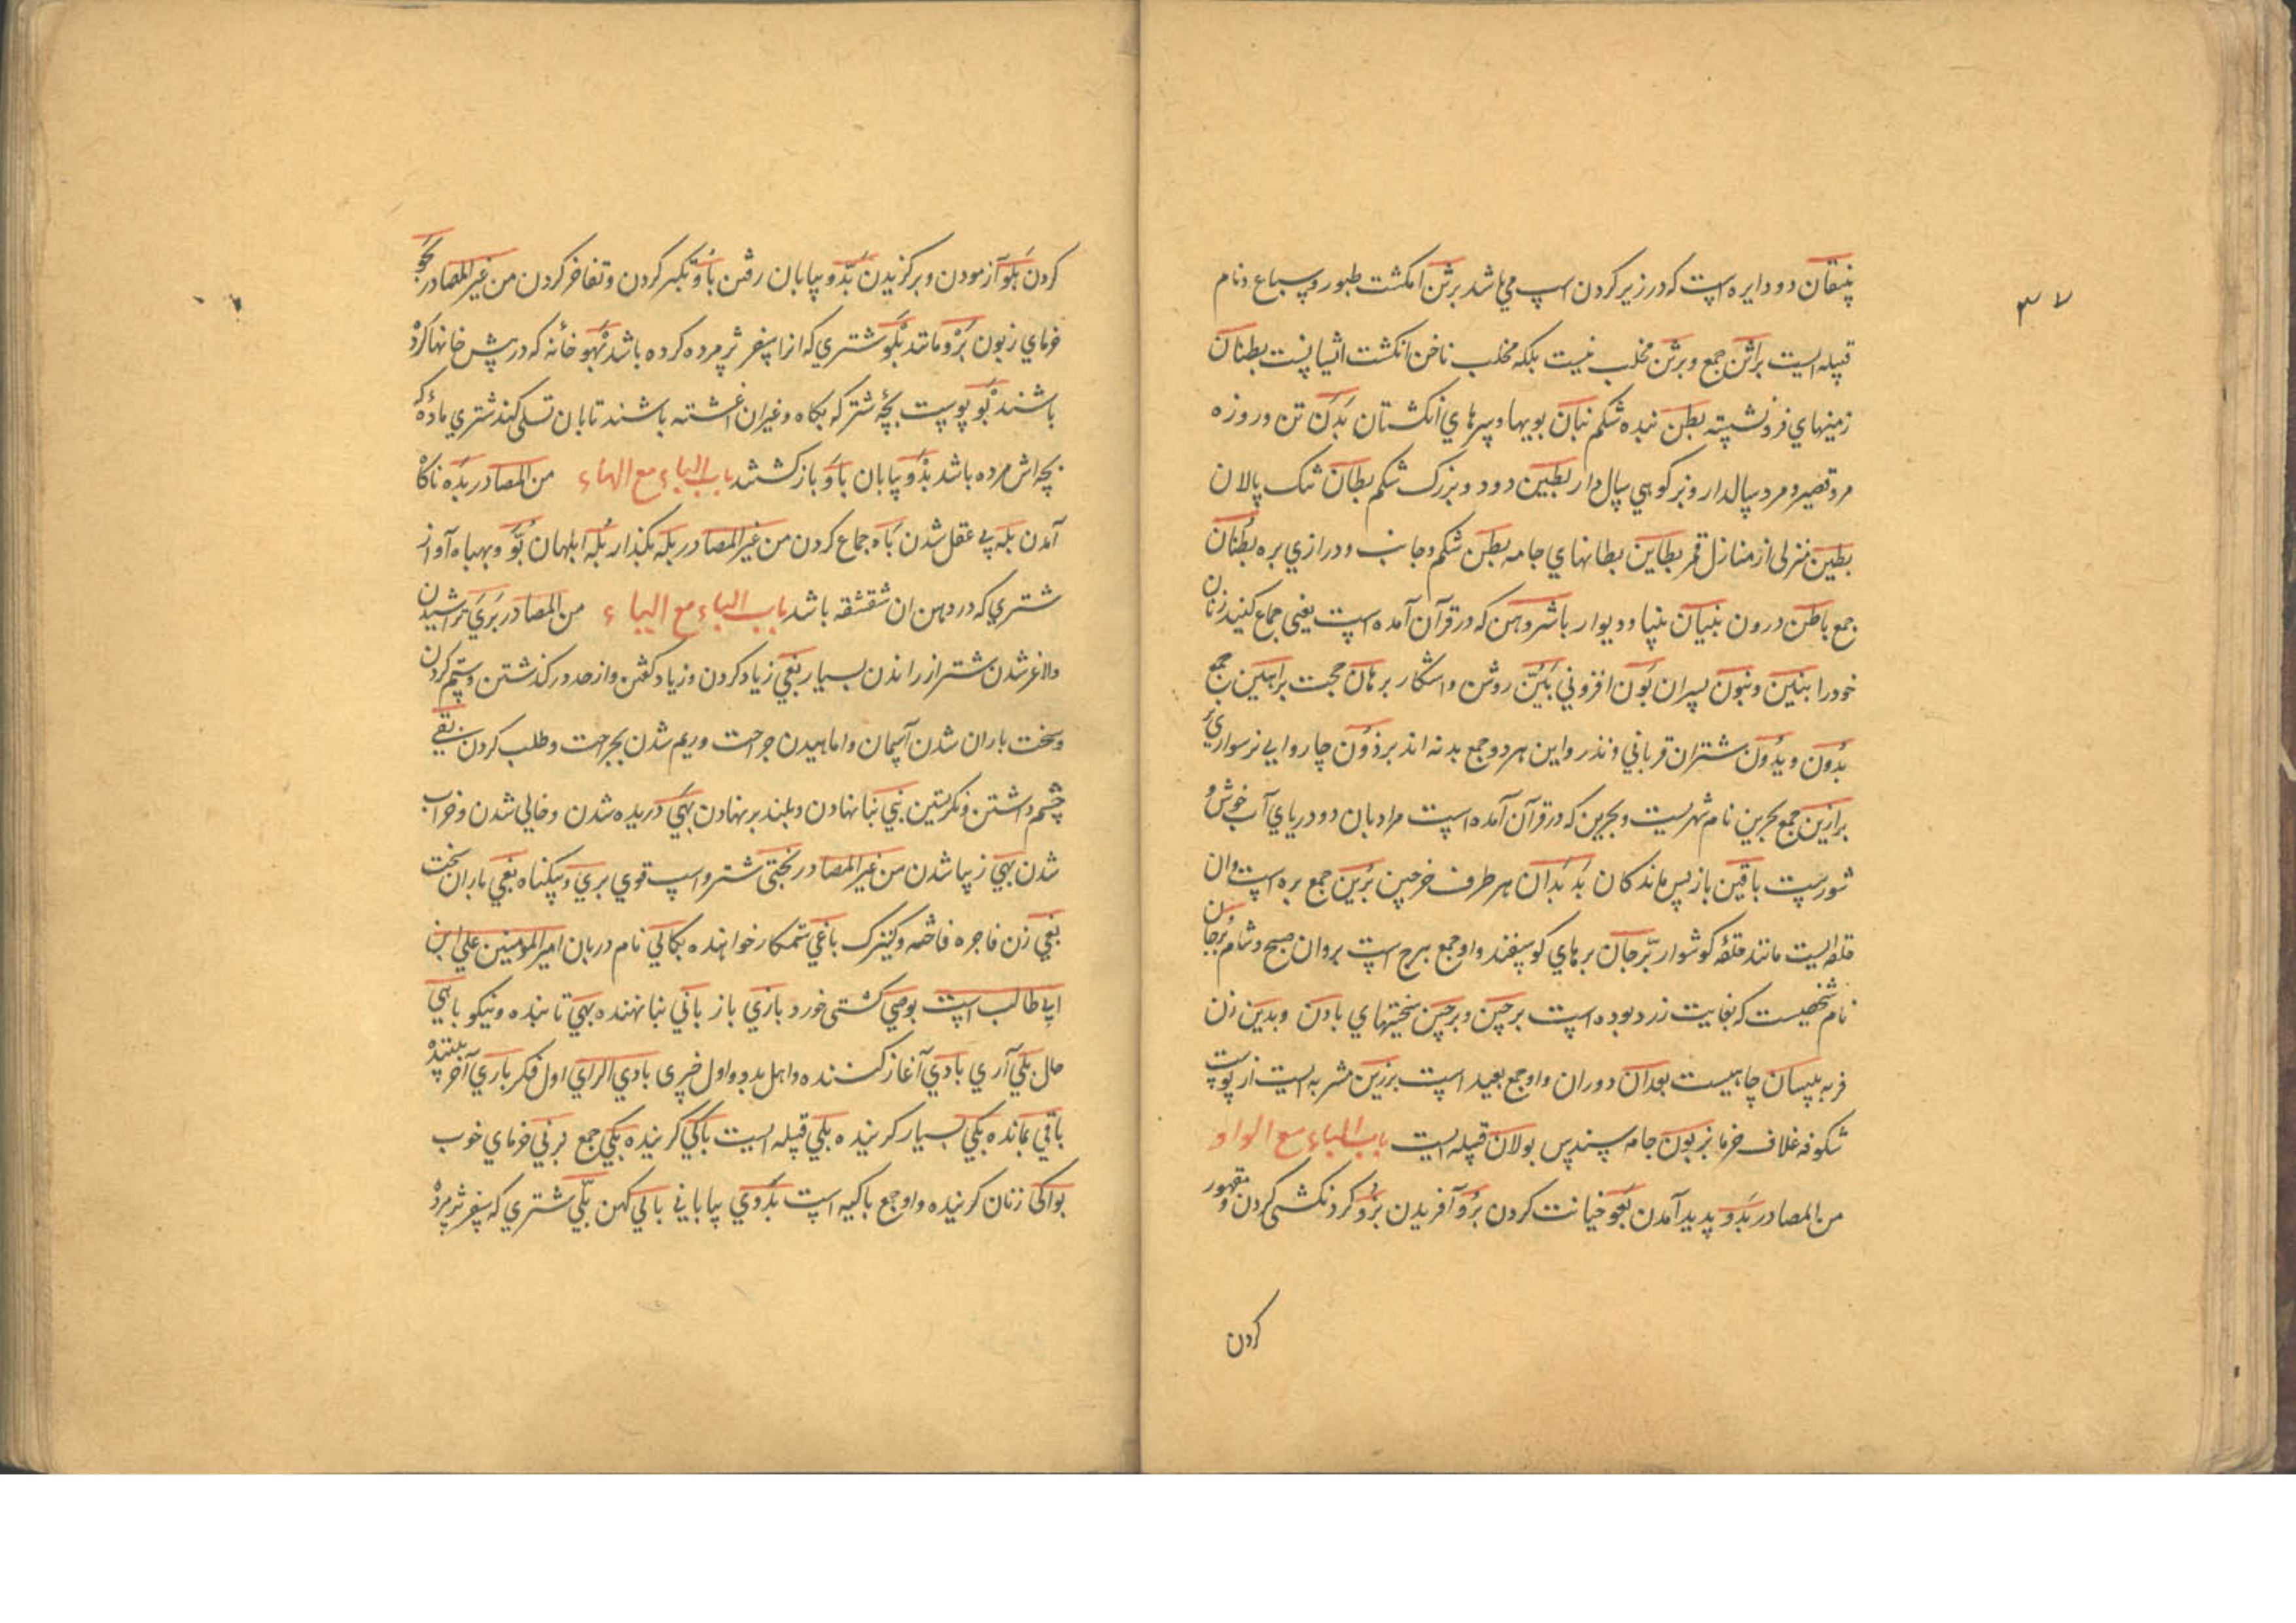 ۳۷
پنیقان دو دایره است که در زیر کردن اسپ می باشد برثن انکشت طیور و سباع و نام
قبیله ایست براثن جمع و برثن مخلب نیست بلکه مخلب ناخن انکشت اسیا پست بطنان
زمینهای فرو نشسته بطن بنده شکم بنان بویها و سرهای انکشتان بدن تن و روزه
مرد قصیر و مرد سالدار و بز کوهی سال دار بطین دود و بزرک شکم بطان تنک پالان
بطین منزلی از منازل قمر بطاین بطانهای جامه بطن شکم و جانب و درازی بره بطنان
جمع باطن درون بنیان بنیاد و دیوار باشروهن که در قرآن آمده است یعنی جماع کنید زنان
خود را بنین و بنون پسران بون افزونی بین روشن و اشکار برهان حجت براهین جمع
بدون و بدون شتران قربانی و نذر و این هر دو جمع بدنه اند برذون چاروایی نر سواری
براذین جمع بحرین نام شهریست و بحرین که در قرآن آمده است مراد بان دو دریای آب خوش و
شورست باقین باز پس ماندکان بدبدان هر طرف خرجین برین جمع بره است وان
حلقه ایست مانند حلقه کوشوار برجان برهای کوسپفند و او جمع برح است بروان صبح و شام برجان
نام شخصیست که بغایت زرد بوده است برحین و برحین سختیهای بادن و بدین زن
فربه بیسان جاهیست بعدان دوران و او جمع بعید است برزین مشربه ایست از پوست
شکوفه غلاف خرما بزیون جامه سندس بولان قبیله ایست باب الباء مع الواو
من المصادر بدو پدید آمدن بغو خیانت کردن برو آفریدن بزو کردنکشی کردن و مقهور
کردن
کردن بلو آزمودن و برکزیدن بدو بیابان رفتن باو تکبر کردن و تفاخر کردن من غیر المصادر بغو
خرمای زبون بزو مانند بلو شتری که از اسفر پژمرده کرده باشد بهو خانه که در پیش خانها کرده
باشند بو پوست بچه شتر که بکاه و غیران اغشته باشند تا بان تسلی کند شتری ماده که
بچه اش مرده باشد بدو بیابان باو باز کشتند باب الباء مع الهاء من المصادر بده ناکاه
آمدن بله بی عقل شدن باه جماع کردن من غیر المصادر بله بکذار بله ابلهان بوه و بهباه آواز
شتری که در دهن ان شقشقه باشد باب الباء مع الیاء من المصادر بری تراشیدن
و لاغر شدن شتر از راندن بسیار بغی زیاد کردن و زیاد کفتن و از حد در کذشتن و ستم کردن
و سخت باران شدن آسمان و اماهیدن جراحت و ریم شدن بجراحت و طلب کردن بقی
چشم داشتن و نکریستن بنی بنا نهادن و بلند بر نهادن بهی دریده شدن و خالی شدن و خراب
شدن بهی زیبا شدن من غیر المصادر بختی شتر و اسپ قوی بری و بیکناه بغی باران سخت
بغی زن فاجره فاحشه و کنیزک باغی ستمکار خواهنده بکالی نام دربان امیر المؤمنین علی ابن
ابی طالب است بوصی کشتی خورد بازی باز بانی بنا نهنده بهی تابنده و نیکو باهی
مال بلی آری بادی آغاز کننده و اهل بدو و اول خپری بادی الرای اول فکر باری آفریننده
باقی بمانده بکی بسیار کرینده بلی قبیله ایست باکی کرینده بکی جمع برنی خرمای خوب
بواکی زنان کرینده و او جمع باکیه است بدوی بیابانی بالی کهن بلی شتری که سفر پژمرده